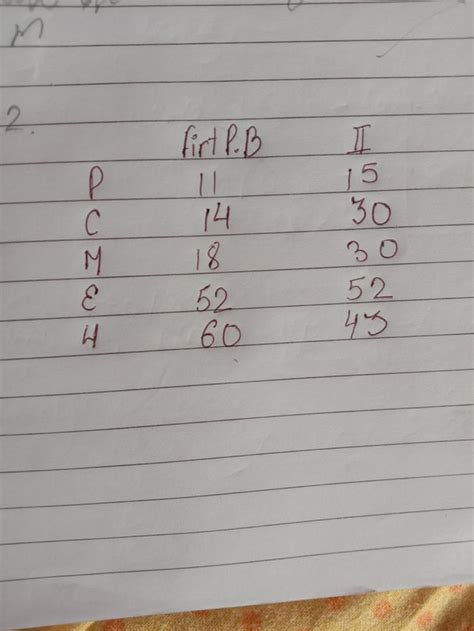 M
2.
firt P.B II
P 11 15
C 14 30
M 18 30
E 52 52
H 60 43